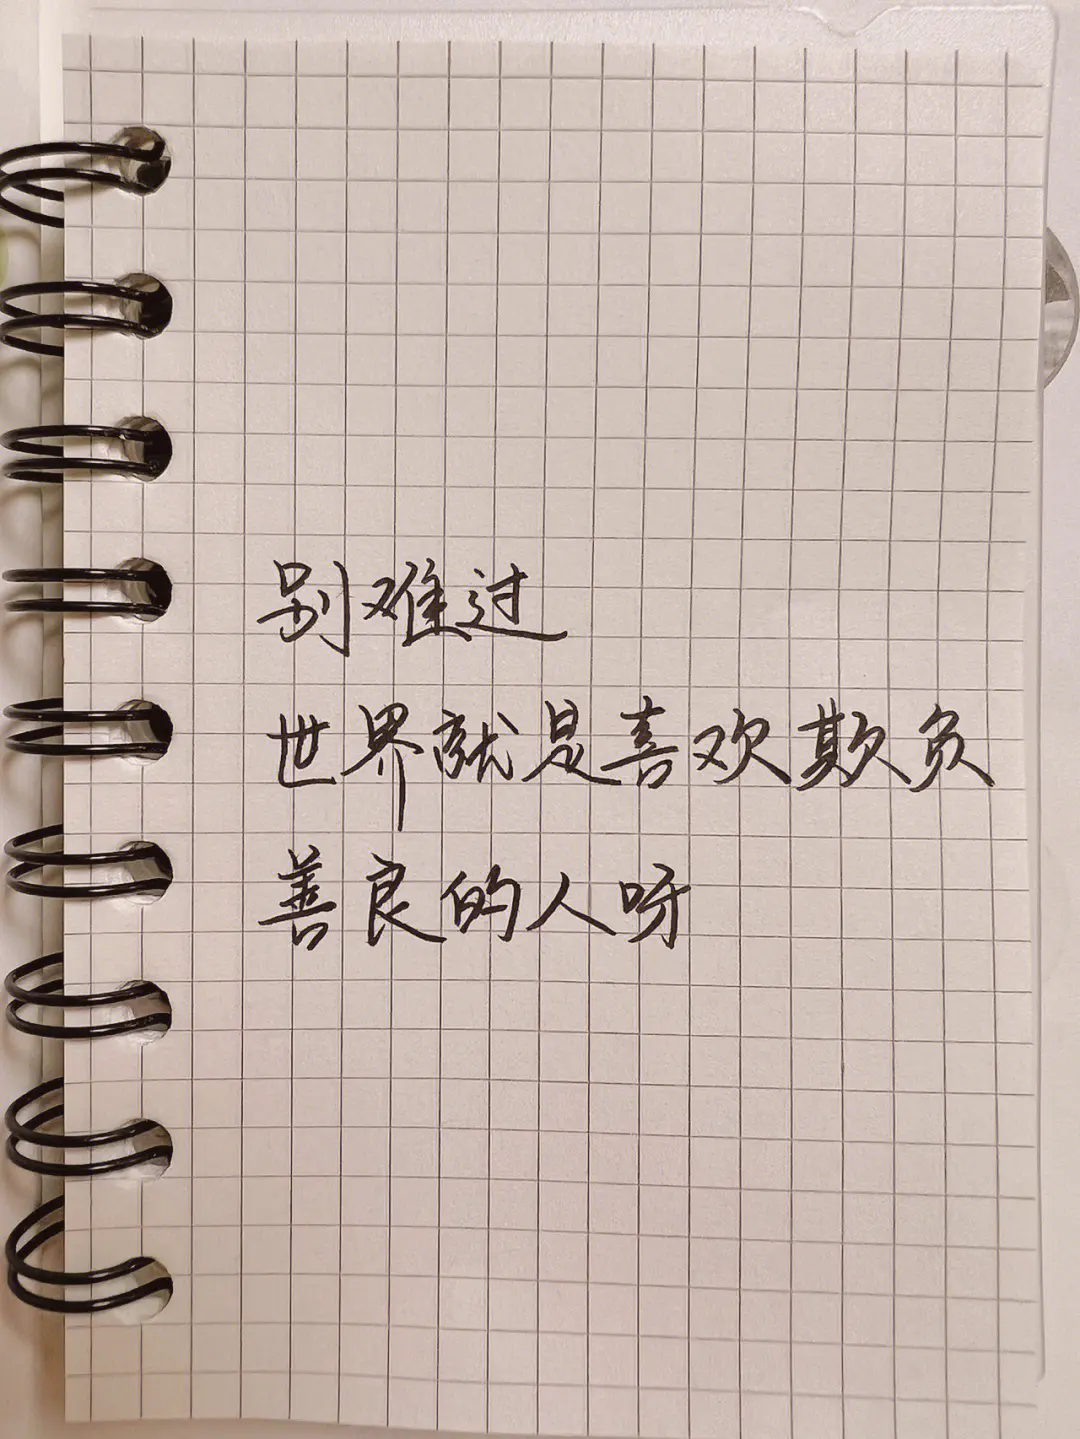 别难过
世界就是喜欢欺负
善良的人呀